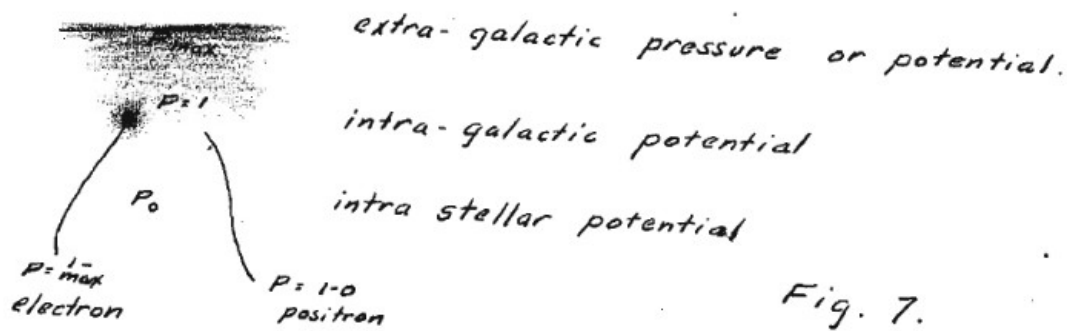 extra-galactic pressure or potential.
Pmax
P=1
intra-galactic potential
P₀
intra stellar potential
P= 1-max
electron
P= 1-0
positron
Fig. 7.